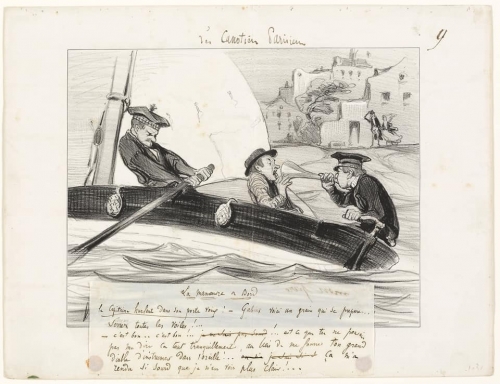 Les Canotiers Parisiens
19
La manœuvre à bord
Le Capitaine hurlant dans son porte voix ! – Gabier voici un grain qui se prépare..
Serrez toutes les voiles !...
– c'est bon.. c'est bon !... est-ce que tu ne peux
pas me dire ça tout tranquillement au lieu de me fourrer ton grand
diable d'instrument dans l'oreille !... Ça m'a
rendu si sourd que je n'en vois plus clair !...